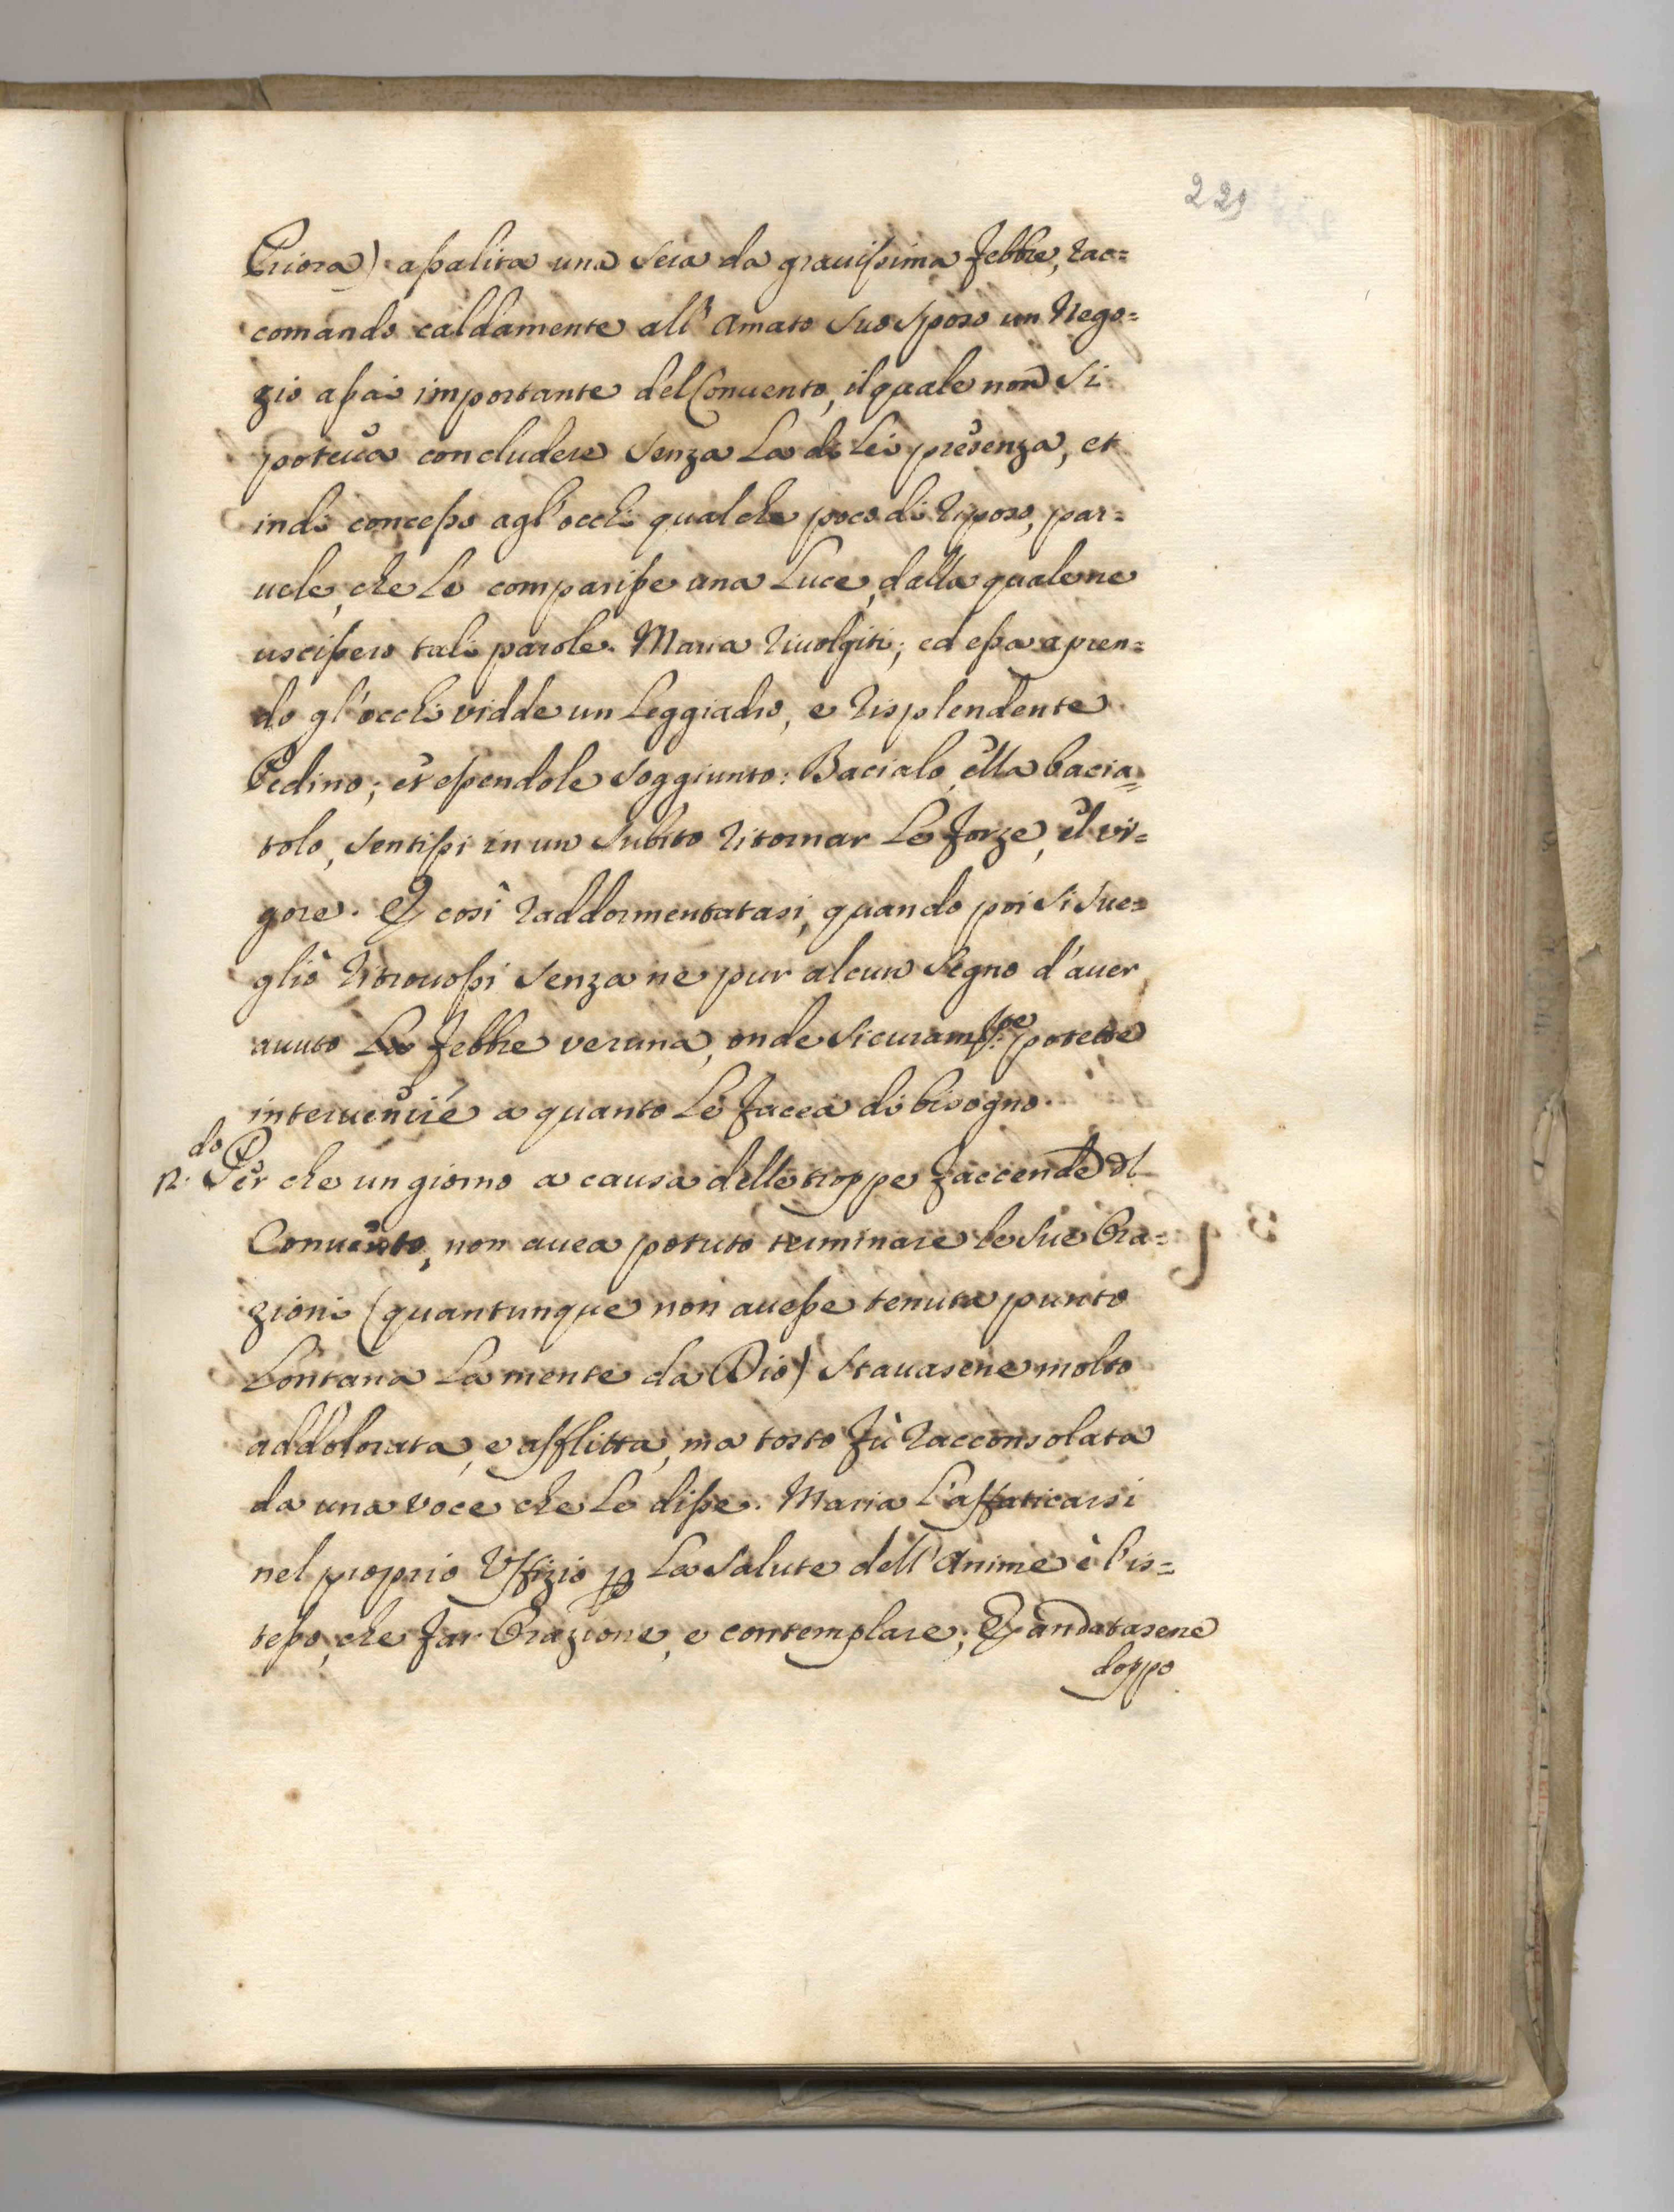 229
Priora) assalita una sera da grauissima febbre, rac=
comando caldamente all' Amato suo sposo un Nego=
zio assai importante del Conuento, il quale non si
poteua concludere senza La di Lei presenza, et
indi concesso agl'occhi qualche poco di riposo, par=
uele, che Le comparisse una Luce, dalla quale ne
uscissero tali parole. Maria riuolgiti; ed essa apren=
do gl'occhi vidde un Leggiadro, e risplendente
Pedino; et essendole soggiunto: Bacialo, ella bacia=
tolo, sentissi in un subito ritornar Le forze, e'l vi=
gore. E così raddormentatasi, quando poi si sue=
gliò ritrouossi senza ne pur alcun segno d'auer
auuto La febbre veruna, onde sicuram.te potette
interuenire a quanto Le facea di bisogno.
do
12. Per che un giorno a causa delle troppe faccende dl
Conuento, non auea potuto terminare le sue Ora=
zioni (quantunque non auesse tenuta punto
Lontana La mente da Dio) stauasene molto
addolorata, e afflitta, ma tosto fù racconsolata
da una voce che Le disse. Maria L'affaticarsi
nel proprio Vffizio p La salute dell'Anime è l'is=
tesso, che far Orazione, e contemplare; E andatasene
doppo